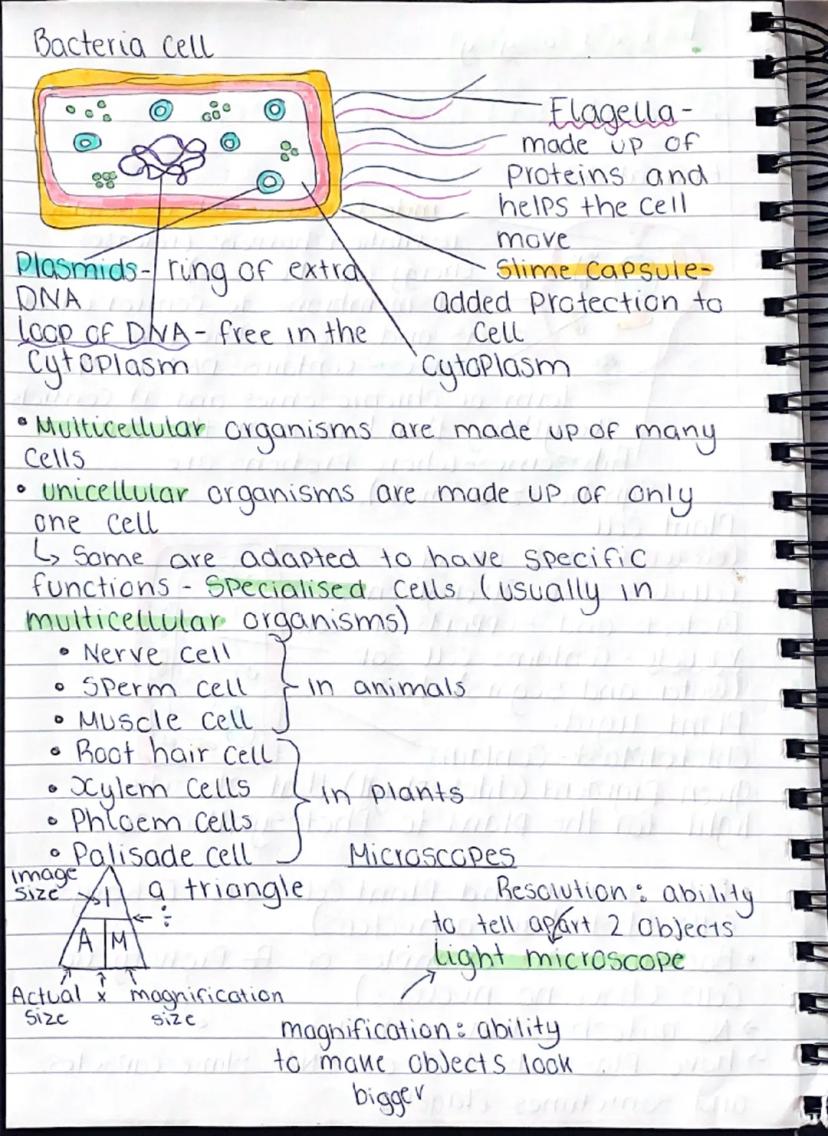 Bacteria cell
Flagella-
made up of
Proteins and
helps the cell
move
Plasmids- ring of extra
DNA
Slime capsule-
added Protection to
Cell
loop of DNA - free in the
Cytoplasm
Cytoplasm
• Multicellular organisms are made up of many
cells
• unicellular organisms are made up of only
one cell
↳ Some are adapted to have specific
functions - Specialised cells (usually in
multicellular organisms)
• Nerve cell
• Sperm cell
• Muscle cell
in animals
• Root hair cell
• Xylem cells
• Phloem cells
• Palisade cell
in Plants
Image
size
I
A M
÷
a triangle
Actual x magnification
size size
Microscopes
Resolution: ability
to tell apart 2 Objects
Light microscope
magnification: ability
to make objects look
bigger